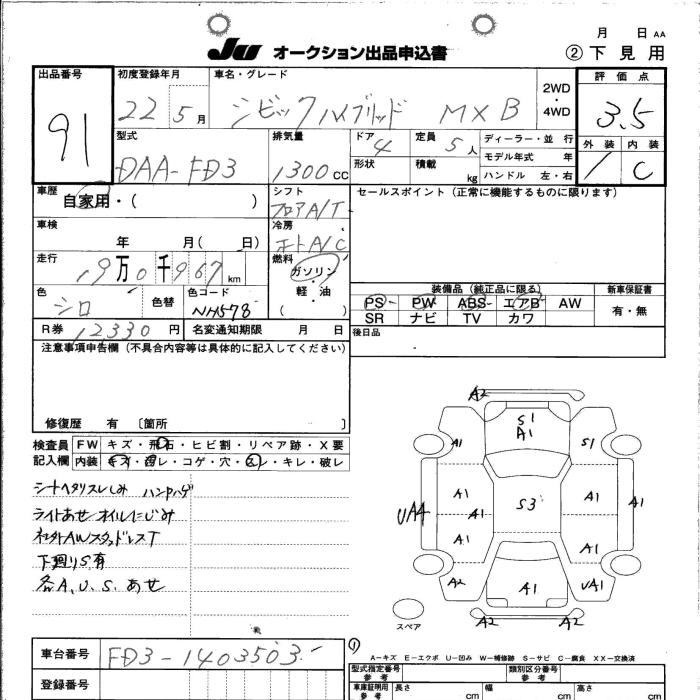 月 日 AA
JU オークション出品申込書 ②下見用
出品番号 初度登録年月 車名・グレード 2WD・4WD 評価点
91 22 5月 シビックハイブリッド MXB 3.5
型式 排気量 ドア 4 定員 5人 ディーラー・並行 外装 内装
DAA-FD3 1300cc 形状 積載 kg モデル年式 年 / C
ハンドル 左・右
車歴 自家用・( ) シフト フロアA/T セールスポイント (正常に機能するものに限ります)
車検 年 月( 日) 冷房 オートA/C
走行 19万0千967km 燃料 ガソリン・軽油( )
色 シロ 色替 色コード NH578
装備品 (純正品に限る) 新車保証書
PS PW ABS エアB AW 有・無
SR ナビ TV カワ
R券 12330円 名変通知期限 月 日 後日品
注意事項申告欄 (不具合内容等は具体的に記入してください)
修復歴 有 〔箇所 〕
検査員記入欄 FW キズ・飛石・ヒビ割・リペア跡・X要
内装 キズ・汚レ・コゲ・穴・スレ・キレ・破レ
シートヘタリスレしみ ハンドルハゲ
ライトあせ オイルにじみ
社外AWスタッドレスT
下廻りS有
各A,U,S,あせ
A2
S1
A1
A1 S1
A1 A1 A1
UA4 A1 S3
A1 A1
A2 A1 UA1
A2 A2
スペア
車台番号 FD3-1403503
登録番号
A-キズ E-エクボ U-凹み W-補修跡 S-サビ C-腐食 XX-交換済
型式指定番号 参考 類別区分番号 参考
車庫証明用 参考 長さ cm 幅 cm 高さ cm